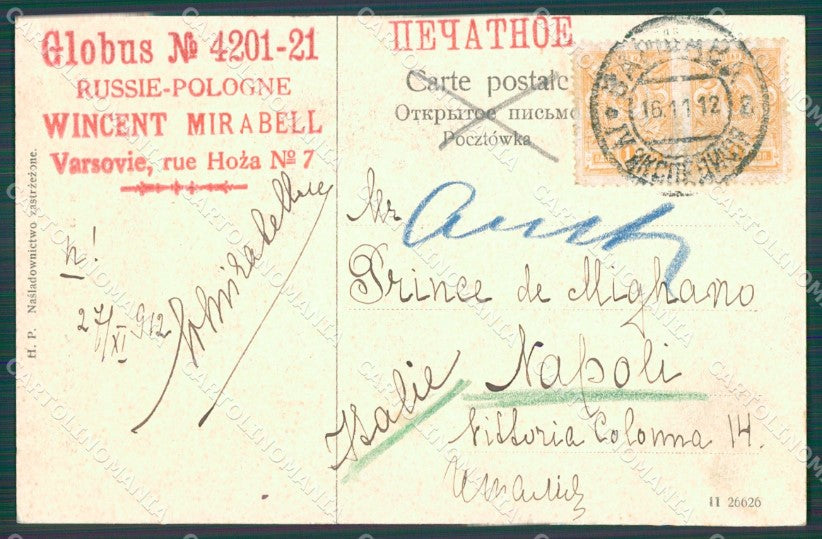 Globus № 4201-21
RUSSIE-POLOGNE
WINCENT MIRABELL
Varsovie, rue Hoża № 7
ПЕЧАТНОЕ
Carte postale
Открытое письмо
Pocztówka
ВАРШАВА
16.11.12
IV ЭКСПЕДИЦІЯ
H. P. Naśladownictwo zastrzeżone.
27/XI 912
Mr
Prince de Mignano
Napoli
Italie
Vittoria Colonna 14.
Италія
11 26626
CARTOLINOMANIA